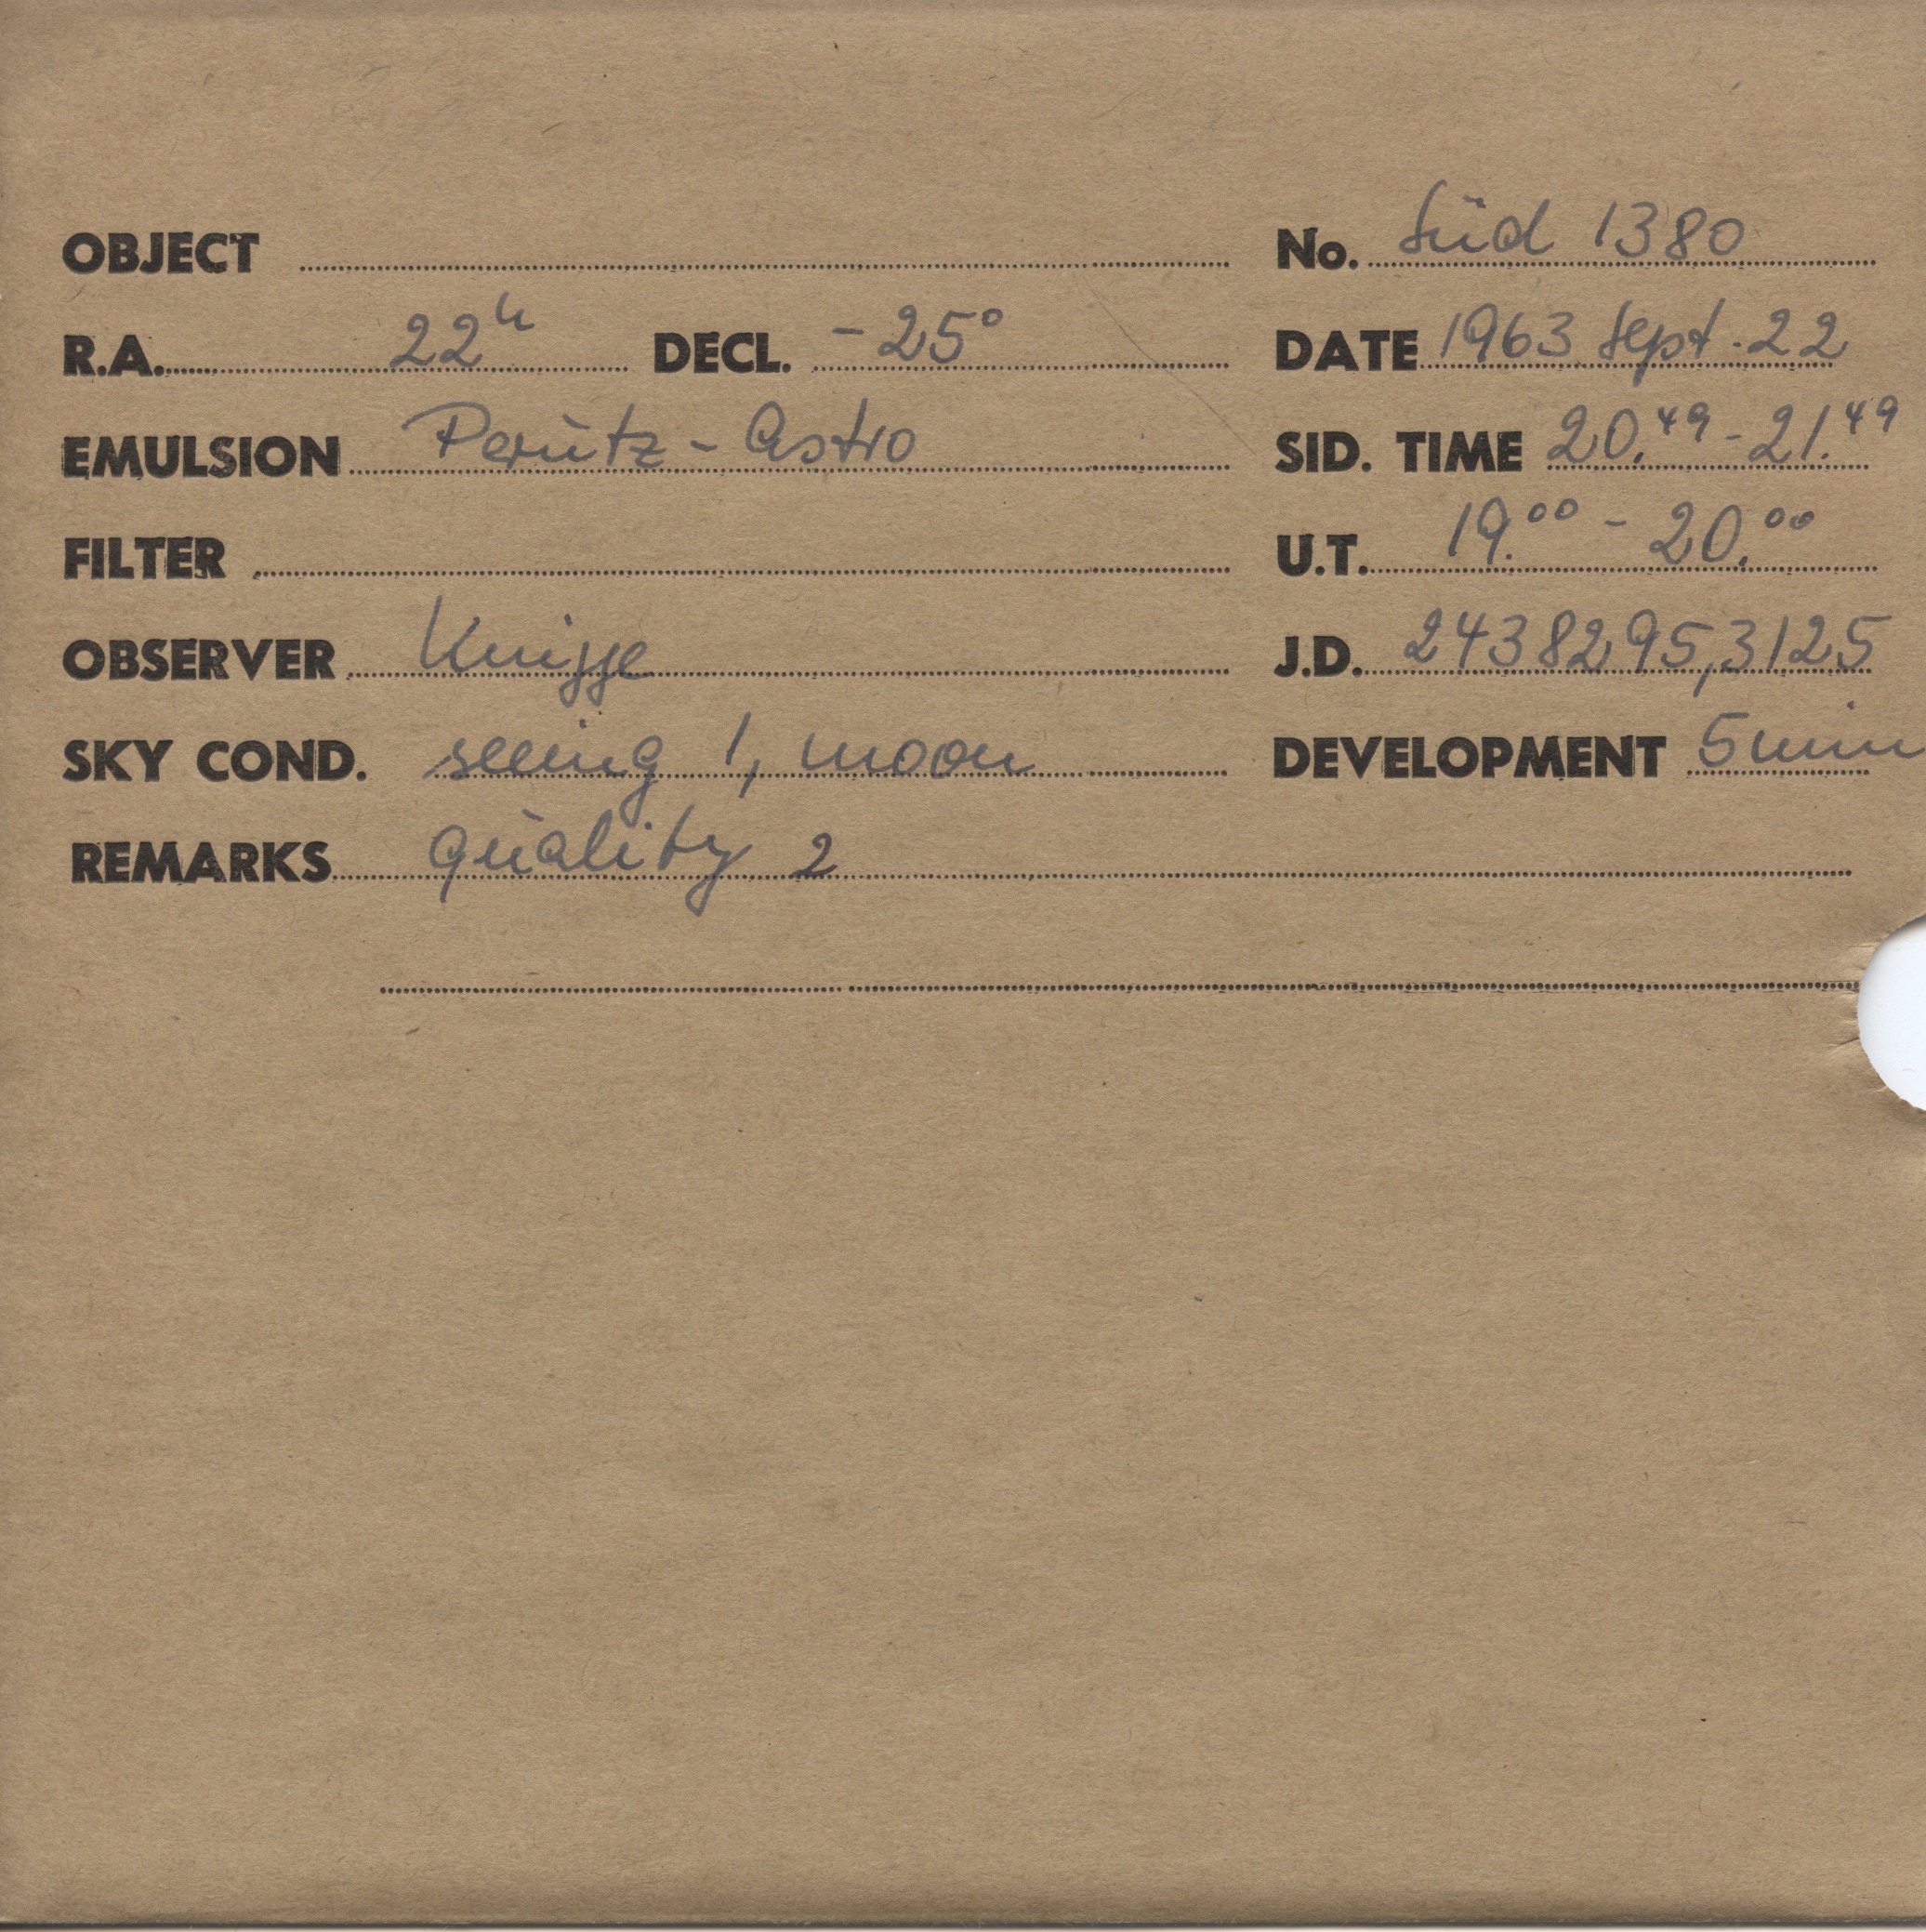 OBJECT No. Süd 1380
R.A. 22h DECL. -25° DATE 1963 Sept. 22
EMULSION Perutz - Astro SID. TIME 20.49 - 21.49
FILTER U.T. 19.00 - 20.00
OBSERVER Knigge J.D. 2438295,3125
SKY COND. seeing 1, moon DEVELOPMENT 5 min
REMARKS quality 2